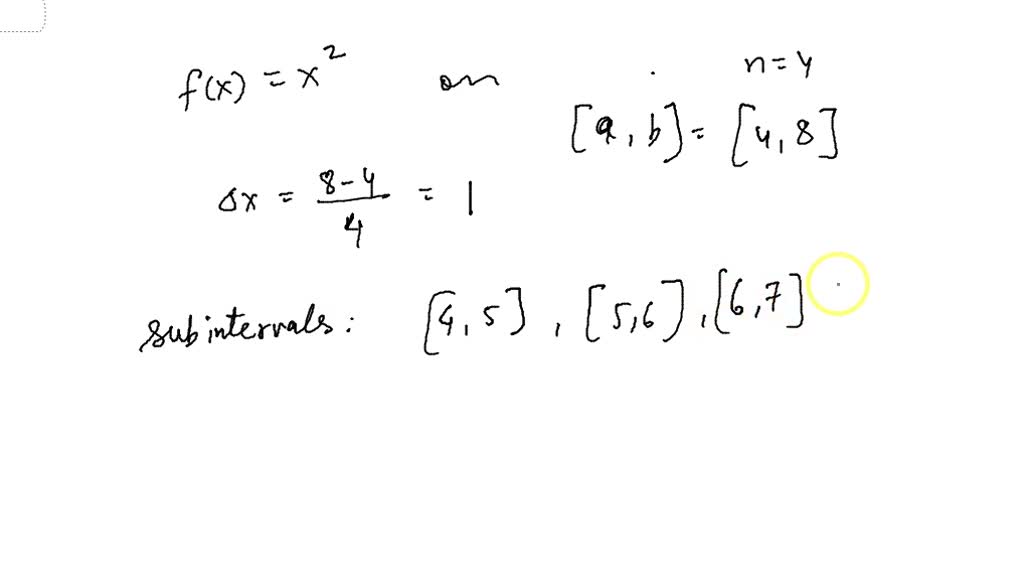 f(x) = x² on
n=4
[a, b] = [4, 8]
Δx = 8-4/4 = 1
subintervals: [4, 5], [5,6], [6,7]